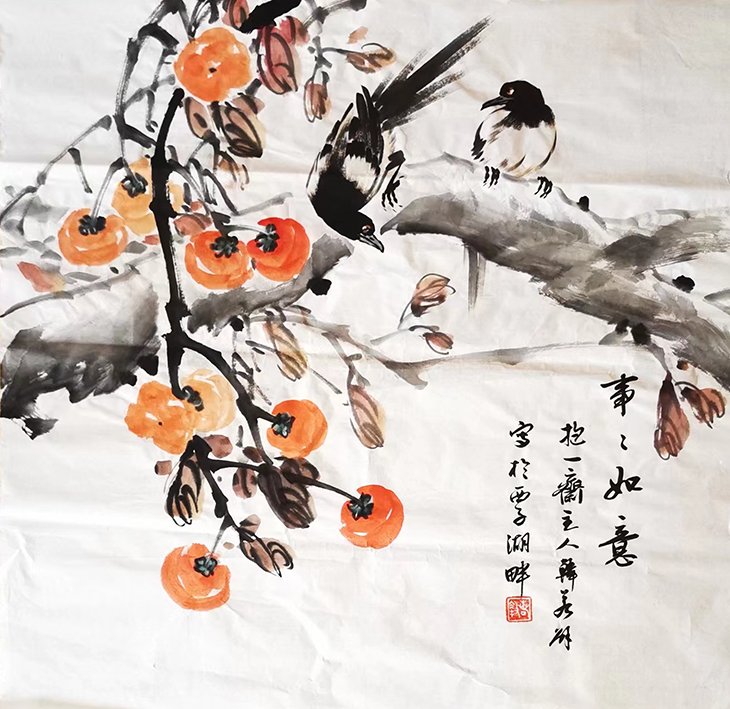 事〻如意
抱一齋主人韓若
寫於西子湖畔